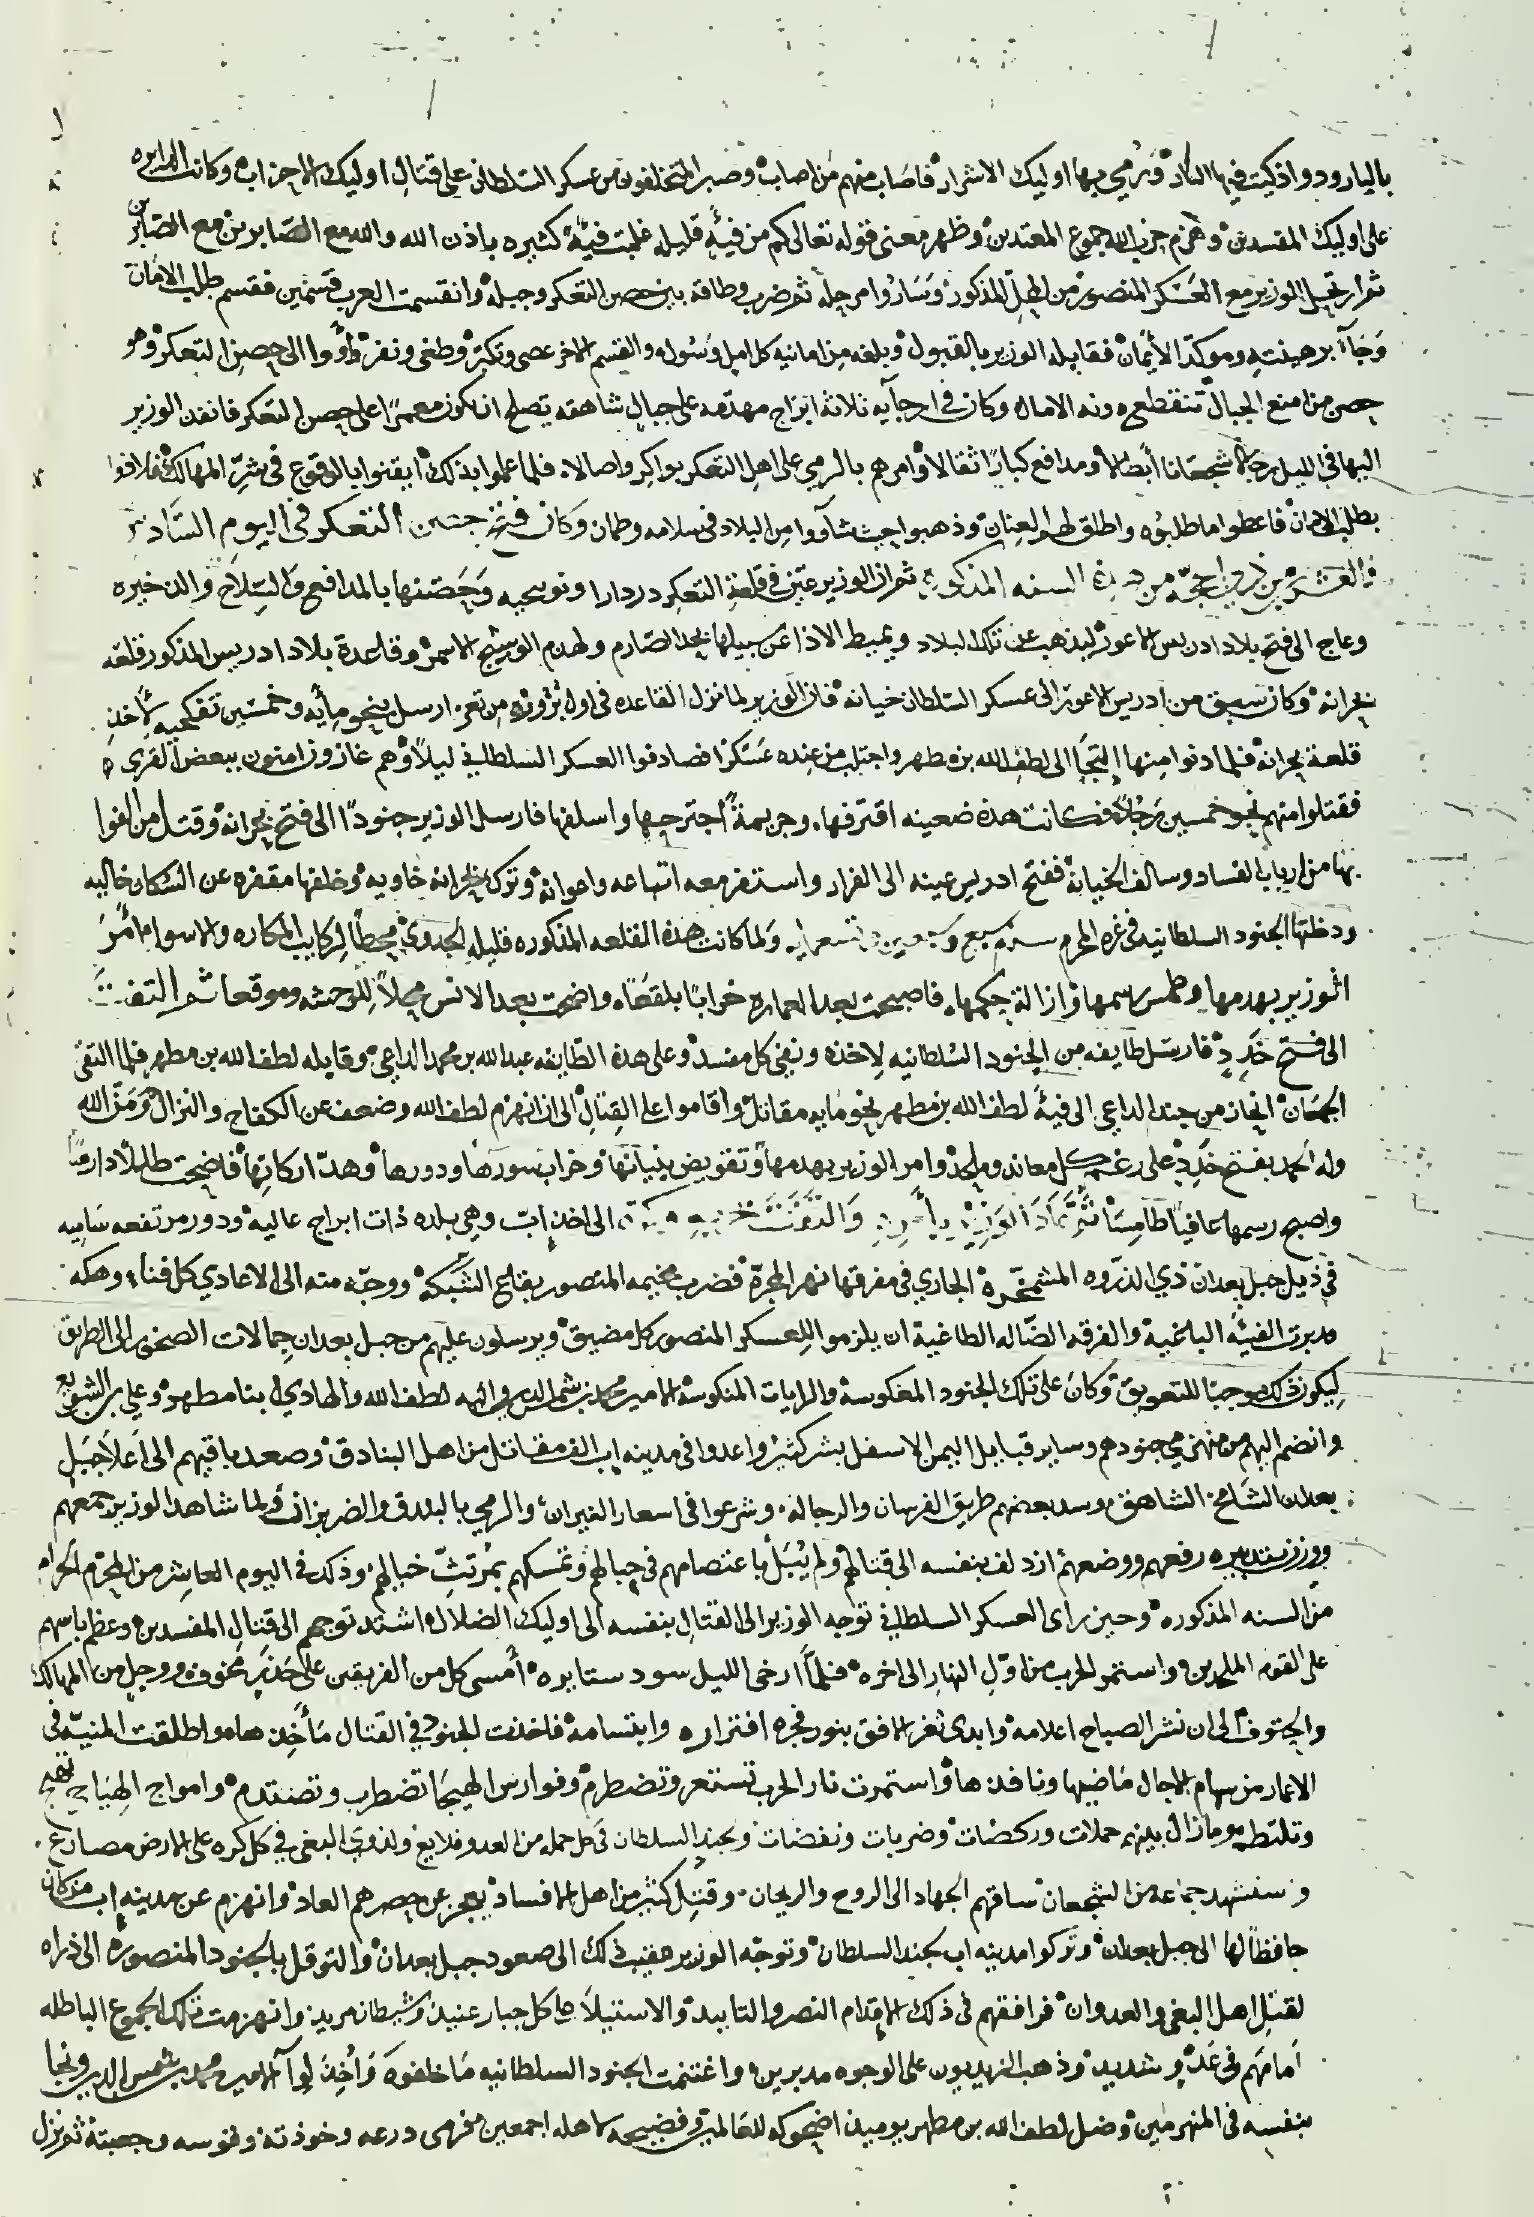 بالبارود واذكيت فيها النار ويرمي بها اوليك الاشرار فاصاب منهم من اصاب وصبر المتخلفون من عسكر السلطان على قتال اوليك الاحزاب وكانت الدايره
على اوليك المفسدين وهزم حزب الله جموع المعتدين وظهر معنى قوله تعالى كم من فيه قليله غلبت فيه كثيره باذن الله والله مع الصابرين مع الصابرين
ثم ارتحل الوزير مع العسكر المنصور من المذكور وساروا مرحله ثم ضرب وطاقه بين حصن التعكر وجبله وانقسمت العرب قسمين فقسم طلب الامان
وجآ برهينته وموكد الأيمان فقابله الوزير بالقبول وبلغه من امانيه كل امل وسوله والقسم الاخر عصى وتكبر وطغى ونفر وأووا الى حصن التعكر وهو
حصن من امنع الجبال تنقطع دونه الامال وكان في ارجآيه ثلاثة ابراج مهدمه على جبال شاهقه تصلح ان تكون معمرا على حصن التعكر فانفذ الوزير
اليها في الليل رجالا شجعانا أبطالا ومدافع كبارا ثقالا وامرهم بالرمي على اهل التعكر بواكر واصالا فلما علموا بذلك ايقنوا بالوقوع في شرّ المهالك فلاذوا
بطلب الامان فاعطوا ما طلبوه واطلق لهم العنان وذهبوا حيث شآووا من البلاد في سلامه وطمان وكان فتح حصن التعكر في اليوم السادس
والعشرين من ذي الحجّه من السنه المذكوره ثم ان الوزير عيّن في قلعة التعكر دزدارا ونوبجيه وحصنها بالمدافع والسلاح والذخيره
وعاج الى فتح بلاد ادريس الاعور ليذهب عن تلك البلاد ويميط الاذا عن سبيلها بحد الصارم ولهذم الوشيج الاسمر وقاعدة بلاد ادريس المذكور قلعه
بحرانه وكان سبق من ادريس الاعور الى عسكر السلطان خيانه فان الوزير لما نزل القاعده في اول بروزه من تعز ارسل بنحو مأيه وخمسين تفكجيه لأخذ
قلعة بحرانه فلما دنوا منها التجآ الى لطف الله بن مطهر واجتلب من عنده عسكرا فصادفوا العسكر السلطاني ليلا وهم غازون امنون ببعض القرى
فقتلوا منهم نحو خمسين رجلا فكانت هذه ضعينه اقترفها وجريمةً اجترحها واسلفها فارسل الوزير جنودا الى فتح بحرانه وقتل من الفوا
بها من ارباب الفساد وسالف الخيانه ففتح ادريس عينه الى الفرار واستفز معه اتباعه واعوانه وترك بحرانه خاويه وخلفها مقفره عن السكان خاليه
ودخلتها الجنود السلطانيه في غره المحرم سنه سبع وسبعين وتسعمايه ولما كانت هذه القلعه المذكوره قليله الجدوى محطّا لركايب المكاره والاسوا امر
الوزير بهدمها وطمس رسمها وازالة حكمها فاصبحت بعد العماره خرابا بلقعا واضحت بعد الانس محلا للوحشه وموقعا ثم التفت
الى فتح خَدِدٍ فارسل طايفه من الجنود السلطانيه لاخذه ونفي كل مفسد وعلى هذه الطايفه عبد الله بن محمد الداعي وقابله لطف الله بن مطهر فلما التقى
الجمعان انحاز من جند الداعي الى فية لطف الله بن مطهر نحو مايه مقاتل واقاموا على القتال الى ان انهزم لطف الله وضعف عن الكفاح والنزال ومنّ الله
وله الحمد بفتح خدد على رغم كل معاند وملحد وامر الوزير بهدمها وتقويض بنيانها وخراب سورها ودورها وهدّ اركانها فاضحت طللا دارسا
واصبح رسمها عافيا طامسا ثم عاد الوزير الى اخذ ابّ وهي بلده ذات ابراج عاليه ودور مرتفعه ساميه
في ذيل جبل بعدان ذي الذروه المشمخره الجاري في مفرقها نهر المجرة فضرب مخيمه المنصور بقاع الشبكه ووجّه منه الى الاعادي كل فناء وهلكه
ودبرت الفيئه الباغية والفرقه الضّاله الطاغية ان يلزموا للعسكر المنصور كل مضيق ويرسلون عليهم من جبل بعدان حمالات الصخور الى الطريق
ليكون ذلك موجبا للتعويق وكان على تلك الجنود المعكوسة والرايات المنكوسة الامير محمد بن شمس الدين واليه لطف الله والهادي ابنا مطهر وعلي بن الشويع
وانضم اليهم من منهزمي جنودهم وساير قبايل اليمن الاسفل بشر كثير واعدوا في مدينه اب الف مقاتل من اهل البنادق وصعد باقيهم الى اعلا جبل
بعدان الشامخ الشاهق وسد بعضهم طريق الفرسان والرجاله وشرعوا في اسعار النيران والرمي بالبندق والضربزان ولما شاهد الوزير جمعهم
ووزن بتدبيره رفعهم ووضعهم ازدلف بنفسه الى قتالهم ولم يُبَل باعتصامهم في جبالهم وتمسكهم بمُرتثّ حبالهم وذلك في اليوم العاشر من المحرم الحرام
من السنه المذكوره وحين راى العسكر السلطاني توجه الوزير الى القتال بنفسه الى اوليك الضلال اشتد توجههم الى قتال المفسدين وعظم باسهم
على القوم الملحدين واستمر الحرب من اوّل النهار الى اخره فلمّا ارخى الليل سود ستايره أمسى كل من الفريقين على حذر مخوف ووجل من المهالك
والحتوف الى ان نشر الصباح اعلامه وابدى ثغر الافق بنور فجره افتراره وابتسامه فاخذت الجنود في القتال مأخذها واطلقت المنيّه في
الاعمار من سهام الاجال ماضيها ونافذها واستمرت نار الحرب تستعر وتضطرم وفوارس الهيجا تضطرب وتصتدم وامواج الهياج تهيج
وتلتطم وما زال بينهم حملات وركضات وضربات ونفضات وبجند السلطان في كل حمله من العدو فلايع ولذوي البغي في كل كره على الارض مصارع
واستشهد جماعه من الشجعان ساقهم الجهاد الى الروح والريحان وقتل كثير من اهل الافساد يعجز عن حصرهم العاد وانهزم عن مدينه اب من كان
حافظا لها الى جبل بعدان وتركوا مدينه اب لجند السلطان وتوجّه الوزير عقيب ذلك الى صعود جبل بعدان والتوقل بالجنود المنصوره الى ذراه
لقتل اهل البغي والعدوان فرافقهم في ذلك الاقدام النصر والتاييد والاستيلا على كل جبار عنيد وشيطان مريد وانهزمت تلك الجموع الباطله
امامهم في عَدْو شديد وذهب الزيديون على الوجوه مدبرين واغتنمت الجنود السلطانيه ما خلفوه وأُخِذَ لوآ الامير محمد بن شمس الدين ونجا
بنفسه في المنهزمين وضل لطف الله بن مطهر يوميذ اضحوكه للعالمين وفضيحه لاهله اجمعين فرمى درعه وخوذته وقوسه وجعبته ثم نزل